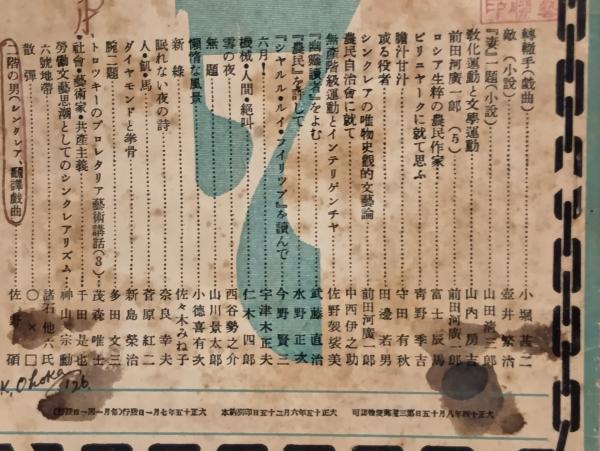 轉轍手(戯曲)‥‥小堀甚二
敵(小説)‥‥壺井繁治
『妻』一題(小説)‥‥山田清三郎
教化運動と文學運動‥‥山内房吉
前田河廣一郎(5)‥‥前田河廣一郎
ロシア生粹の農民作家・‥‥富士辰馬
ピリニヤークに就て思ふ‥‥青野季吉
或る役者‥‥守田有秋
膽汁甘汁‥‥田邊若男
シンクレアの唯物史觀的文藝論‥‥前田河廣一郎
農民自治會に就て‥‥中西伊之助
無產階級運動とインテリゲンチヤ‥‥佐野袈裟美
『幽囚讀者』をよむ‥‥武藤直治
『農民』を評して‥‥水野正次
『シヤルル・ルイ・フイリツプ』を讀んで‥‥今野賢三
六月！‥‥宇津木正夫
機械・人間・絶叫‥‥仁木四郎
雪の夜‥‥西谷勢之介
無題‥‥山川景太郎
懶惰な風景‥‥小德喜有次
新綠‥‥佐々木みね子
眠れない夜の詩‥‥奈良幸夫
人・飢・馬‥‥菅原紅二
ダイヤモンドと拳骨‥‥新島榮治
腕二題‥‥多田文三
トロツキーのプロレタリア藝術講話(3)‥‥茂森唯士
・社會・藝術家・共產主義‥‥千田是也
勞働文藝思潮としてのシンクレアリズム‥‥神山宗勳
六號地帶‥‥諸石他六氏
散彈‥‥〇×口
二階の男(シンクレア、飜譯戯曲)‥‥佐野碩
K. Ohoka
'26.
大正十四年八月十五日第三種郵便物認可
大正十五年六月二十五日印刷納本
大正十五年七月一日發行(每月一回一日發行)